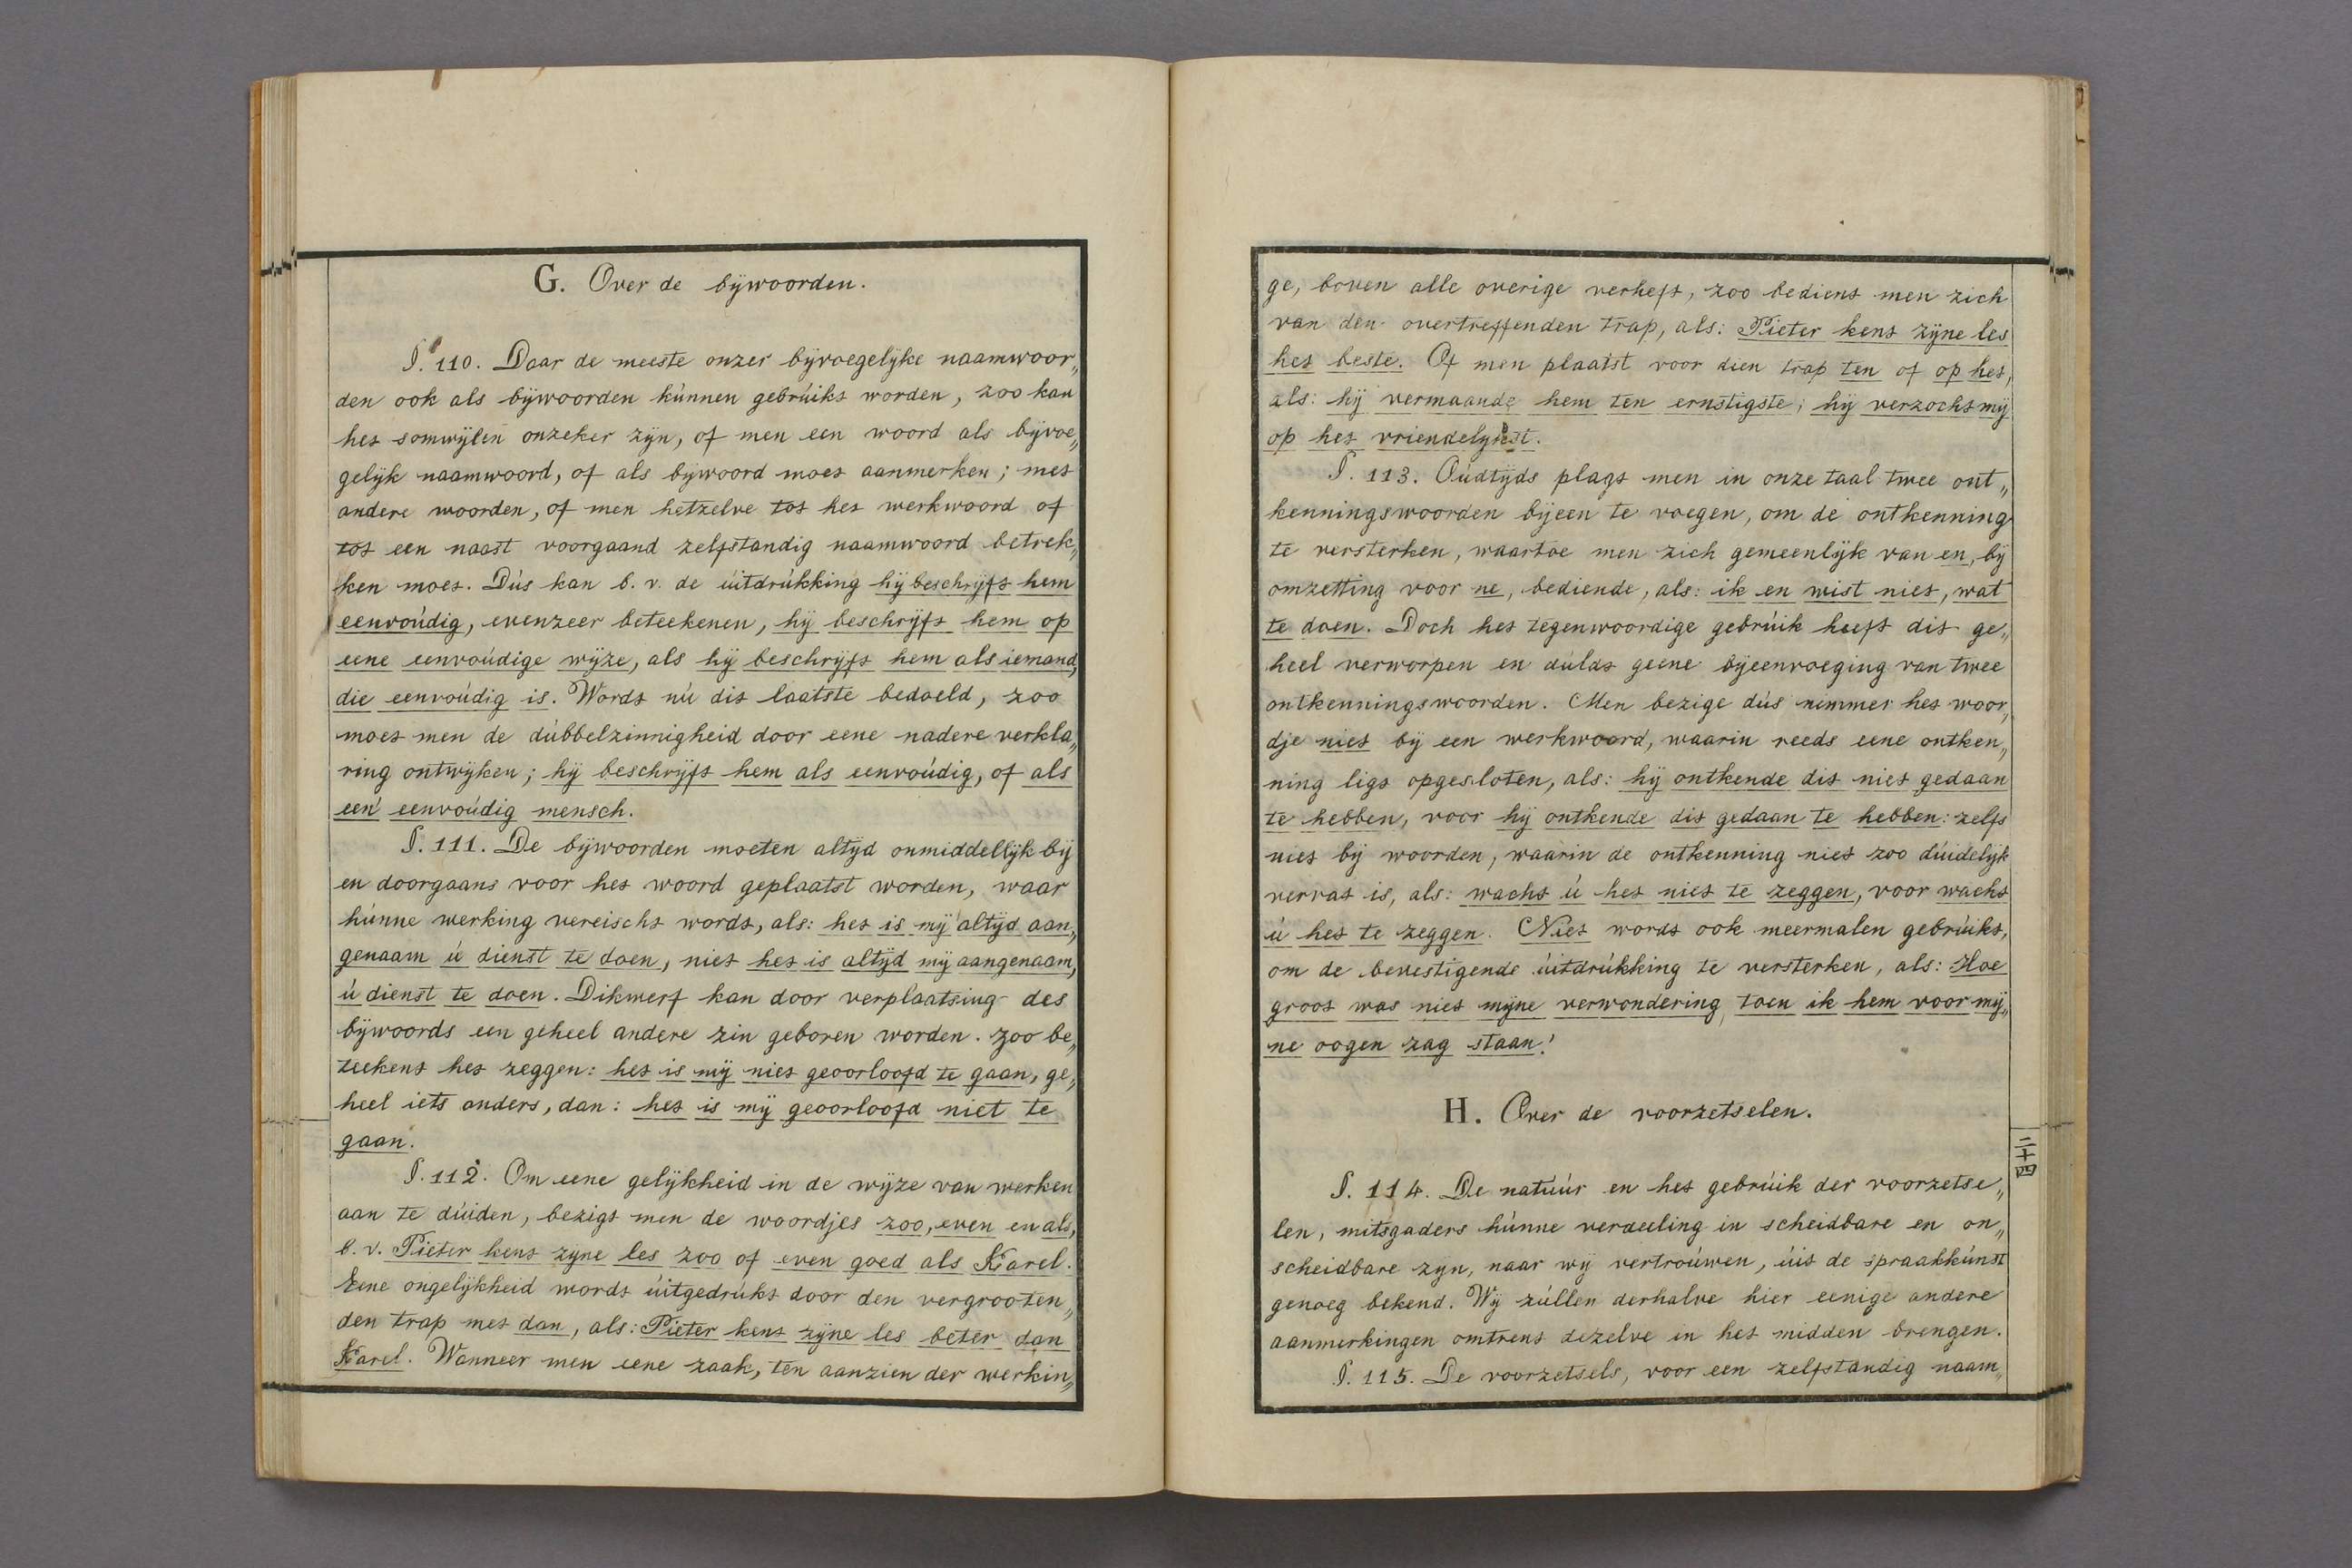 G. Over de bÿwoorden.
§. 110. Daar de meeste onzer bÿvoegelÿke naamwoor„
den ook als bÿwoorden kúnnen gebrúikt worden, zoo kan
het somwÿlen onzeker zÿn, of men een woord als bÿvoe„
gelÿk naamwoord, of als bÿwoord moet aanmerken; met
andere woorden, of men hetzelve tot het werkwoord of
tot een naast voorgaand zelfstandig naamwoord betrek„
ken moet. Dús kan b. v. de úitdrúkking hÿ beschrÿft hem
eenvoúdig, evenzeer beteekenen, hÿ beschrÿft hem op
eene eenvoúdige wÿze, als hÿ beschrÿft hem als iemand,
die eenvoúdig is. Wordt nú dit laatste bedoeld, zoo
moet men de dúbbelzinnigheid door eene nadere verkla„
ring ontwÿken; hÿ beschrÿft hem als eenvoúdig, of als
een eenvoúdig mensch.
§. 111. De bÿwoorden moeten altÿd onmiddellÿk bÿ
en doorgaans voor het woord geplaatst worden, waar
húnne werking vereischt wordt, als: het is mÿ altÿd aan„
genaam ú dienst te doen, niet het is altÿd mÿ aangenaam,
ú dienst te doen. Dikwerf kan door verplaatsing des
bÿwoords een geheel andere zin geboren worden. Zoo be„
teekent het zeggen: het is mÿ niet geoorloofd te gaan, ge„
heel iets anders, dan: het is mÿ geoorloofd niet te
gaan.
§. 112. Om eene gelÿkheid in de wÿze van werken
aan te dúiden, bezigt men de woordjes zoo, even en als,
b. v. Pieter kent zÿne les zoo of even goed als Karel.
Eene ongelÿkheid wordt úitgedrúkt door den vergrooten„
den trap met dan, als: Pieter kent zÿne les beter dan
Karel. Wanneer men eene zaak, ten aanzien der werkin„
ge, boven alle overige verheft, zoo bedient men zich
van den overtreffenden trap, als: Pieter kent zÿne les
het beste. Of men plaatst voor dien trap ten of op het,
als: hÿ vermaande hem ten ernstigste; hÿ verzocht mÿ
op het vriendelykst.
§. 113. Oúdtÿds plagt men in onze taal twee ont„
kenningswoorden bÿeen te voegen, om de ontkenning
te versterken, waartoe men zich gemeenlÿk van en, bÿ
omzetting voor ne, bediende, als: ik en wist niet, wat
te doen. Doch het tegenwoordige gebrúik heeft dit ge„
heel verworpen en dúldt geene bÿeenvoeging van twee
ontkenningswoorden. Men bezige dús nimmer het woor„
dje niet bÿ een werkwoord, waarin reeds eene ontken„
ning ligt opgesloten, als: hÿ ontkende dit niet gedaan
te hebben, voor hÿ ontkende dit gedaan te hebben: zelfs
niet bÿ woorden, waarin de ontkenning niet zoo dúidelÿk
vervat is, als: wacht ú het niet te zeggen, voor wacht
ú het te zeggen. Niet wordt ook meermalen gebrúikt,
om de bevestigende úitdrúkking te versterken, als: Hoe
groot was niet mÿne verwondering, toen ik hem voor mÿ„
ne oogen zag staan!
H. Over de voorzetselen.
§. 114. De natúúr en het gebrúik der voorzetse„
len, mitsgaders húnne verdeeling in scheidbare en on„
scheidbare zÿn, naar wÿ vertroúwen, úit de spraakkúnst
genoeg bekend. Wÿ zúllen derhalve hier eenige andere
aanmerkingen omtrent dezelve in het midden brengen.
§. 115. De voorzetsels, voor een zelfstandig naam„
二十四